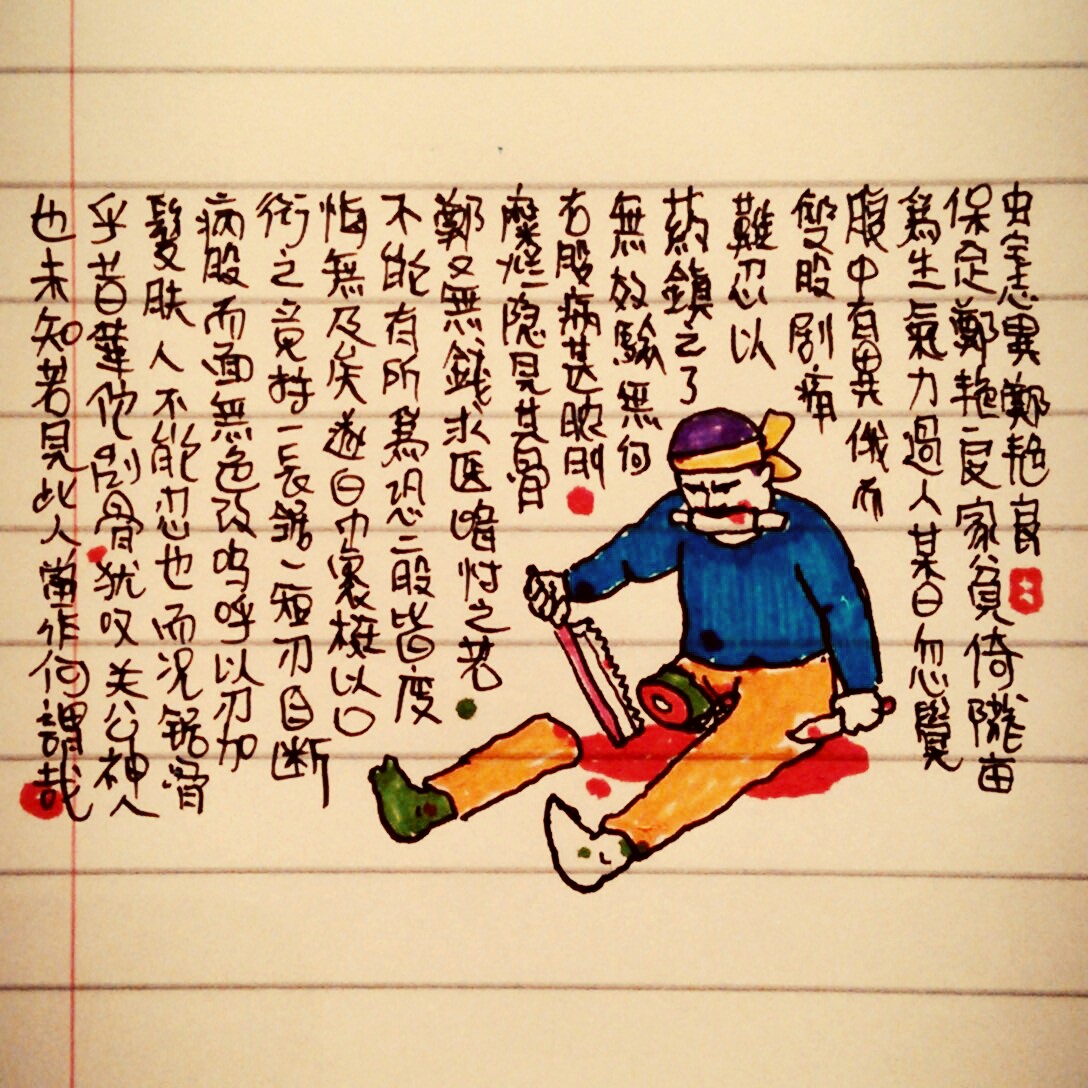 虫室志異 鄭艳良
保定鄭艳良家負倚隴亩
爲生氣力過人某日忽覺
腹中有異俄而
雙股剧痛
難忍以
药鎮之了
無效驗無何
右股病甚脓則
糜烂隐見其骨
鄭又無錢求医暗忖之若
不能有所爲恐二股皆废
悔無及矣遂白巾裹梃以口
衔之竟持一長鋸一短刃自断
病股而面無色改呜呼以刃加
髮肤人不能忍也而况鋸骨
乎昔華佗刮骨犹叹关公神人
也未知若見此人當作何謂哉